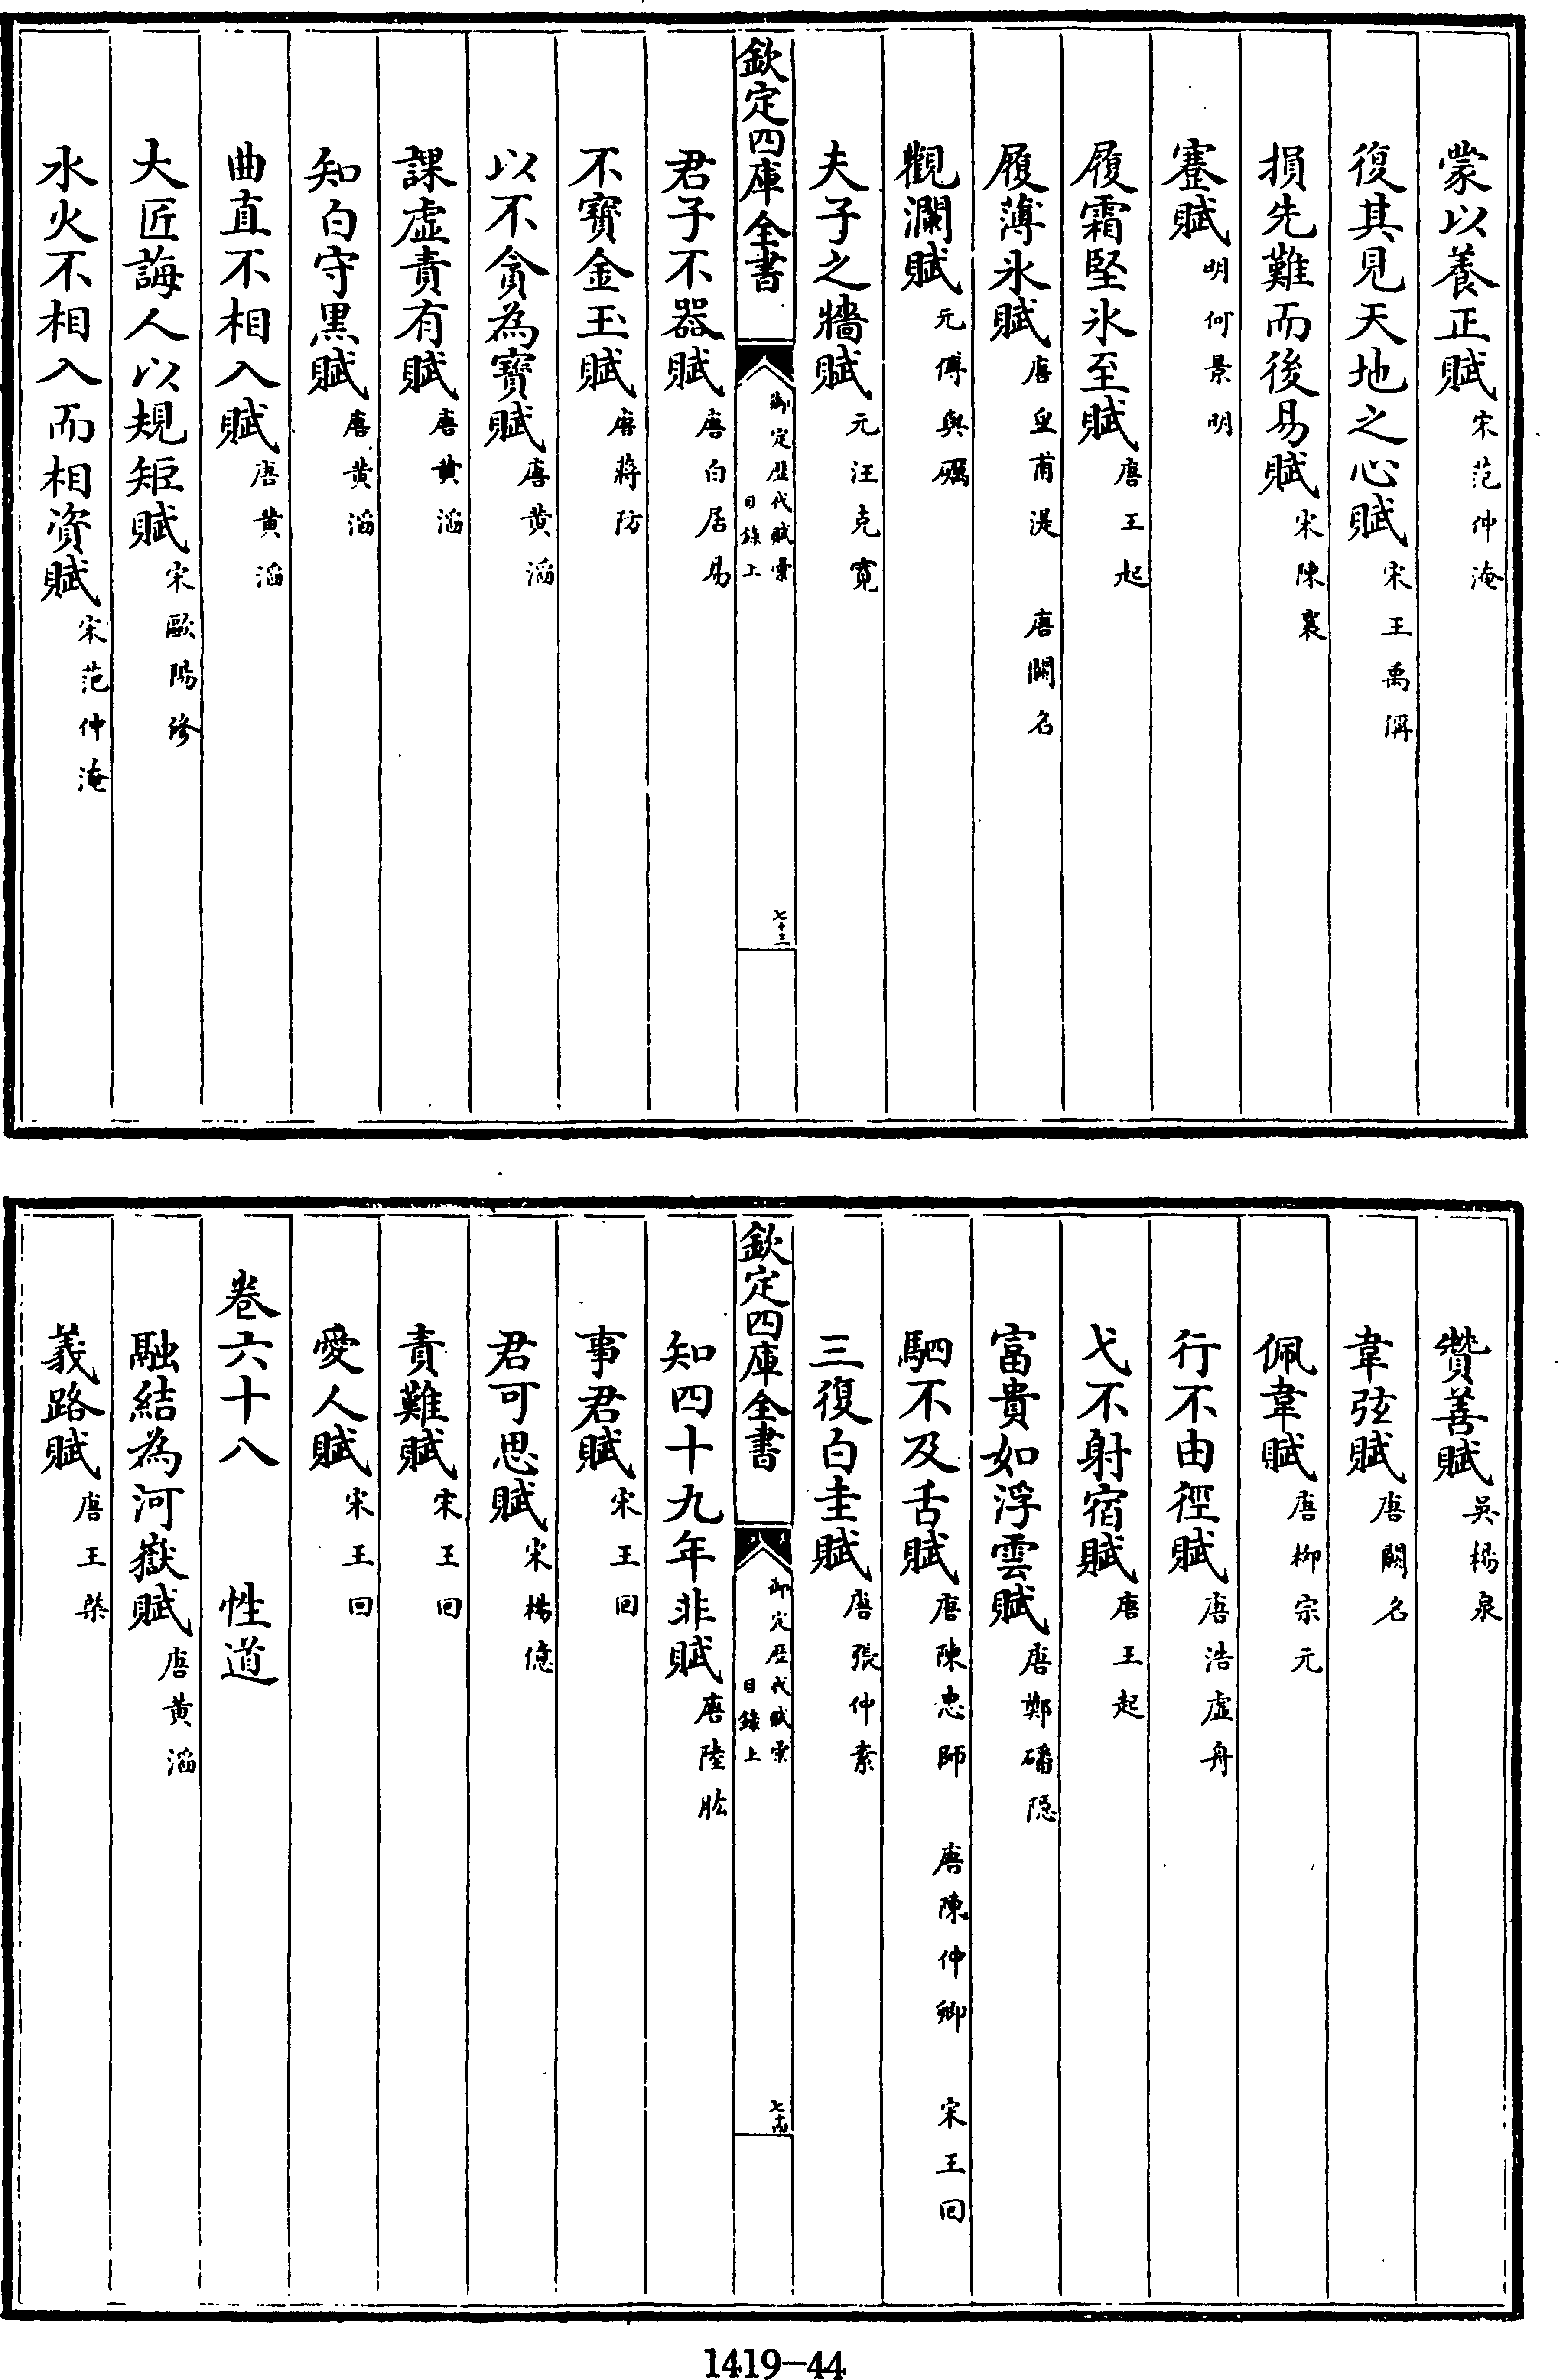 蒙以養正賦宋范仲淹
復其見天地之心賦宋王禹偁
損先難而後易賦宋陳襄
蹇賦明何景明
履霜堅氷至賦唐王起
履薄氷賦唐皇甫湜 唐闕名
觀瀾賦元傅與礪
夫子之牆賦元汪克寛
欽定四庫全書 御定歷代賦彙 目錄上 七十三
君子不器賦唐白居易
不寳金玉賦唐蔣防
以不貪為寳賦唐黄滔
課虚責有賦唐黄滔
知白守黒賦唐黄滔
曲直不相入賦唐黄滔
大匠誨人以規矩賦宋歐陽修
水火不相入而相資賦宋范仲淹
贊善賦吳楊泉
韋弦賦唐闕名
佩韋賦唐栁宗元
行不由徑賦唐浩虚舟
弋不射宿賦唐王起
富貴如浮雲賦唐鄭磻隠
駟不及舌賦唐陳忠師 唐陳仲卿 宋王回
三復白圭賦唐張仲素
欽定四庫全書 御定歷代賦彙 目錄上 七十四
知四十九年非賦唐陸肱
事君賦宋王回
君可思賦宋楊億
責難賦宋王回
愛人賦宋王回
卷六十八 性道
融結為河嶽賦唐黄滔
義路賦唐王棨
1419-44